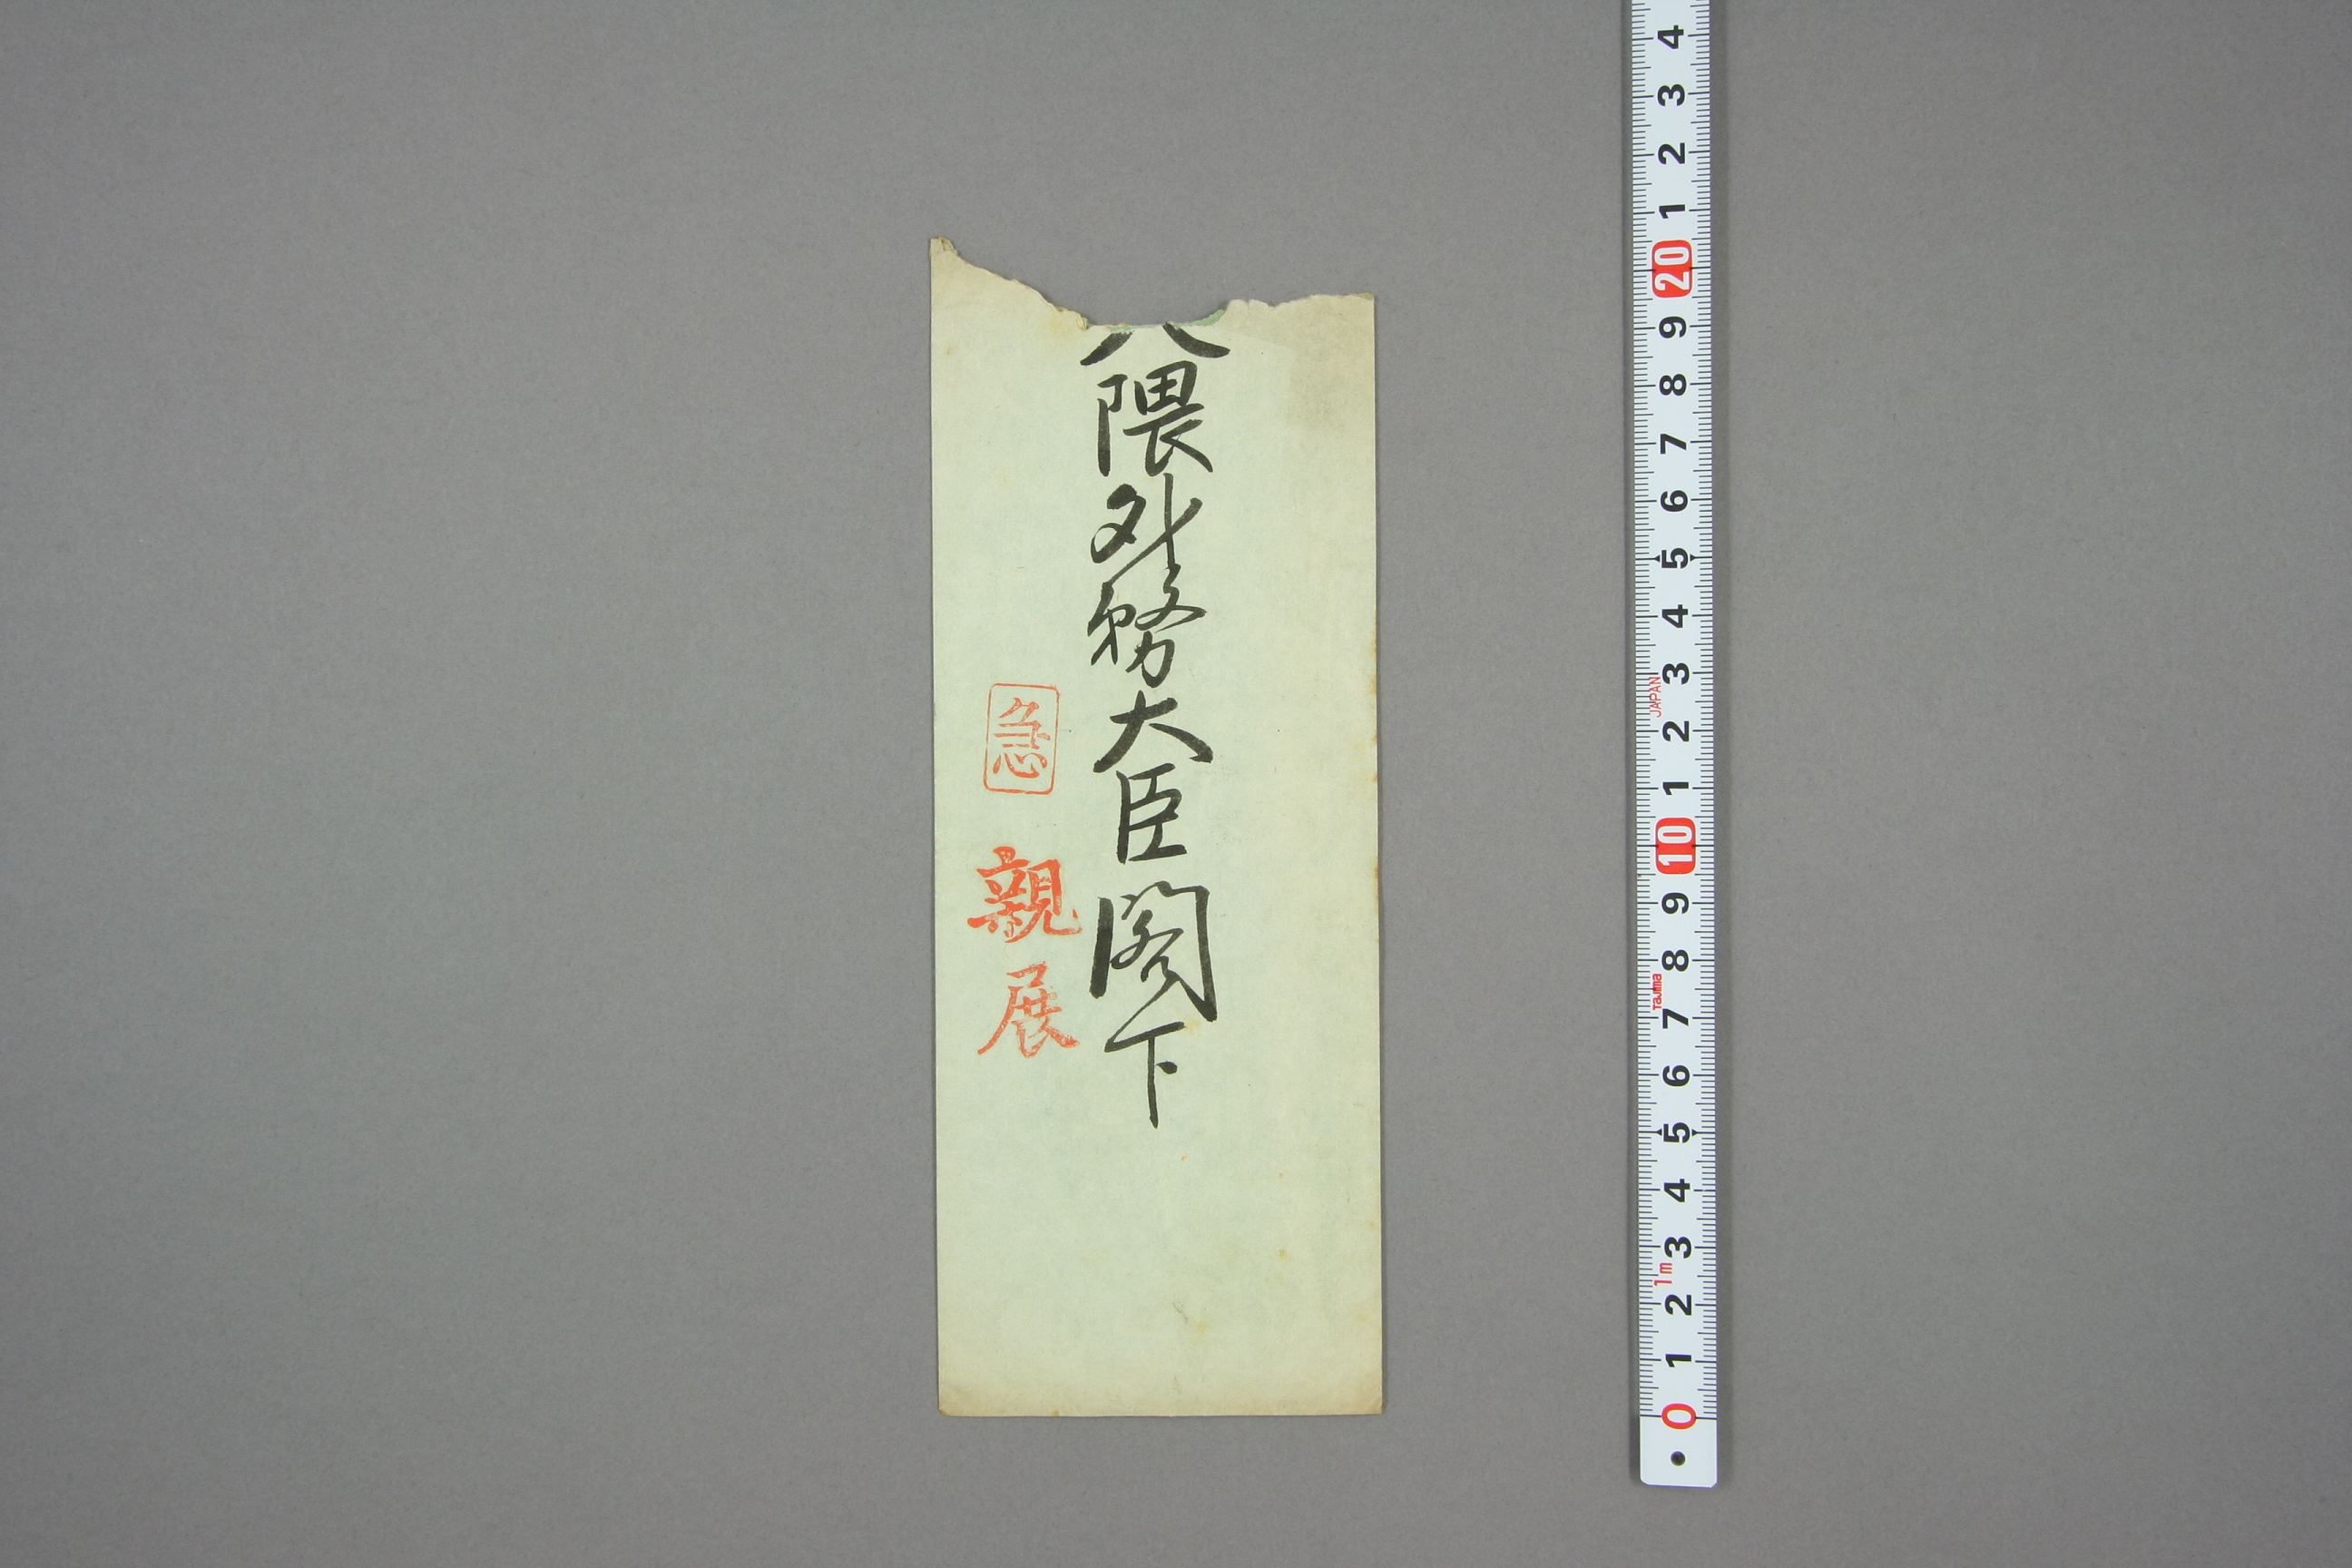 大隈外務大臣閣下
急 親展
4 3 2 1 20 9 8 7 6 5 4 3 2 1 10 9 8 7 6 5 4 3 2 1 0
JAPAN Tajima 1m